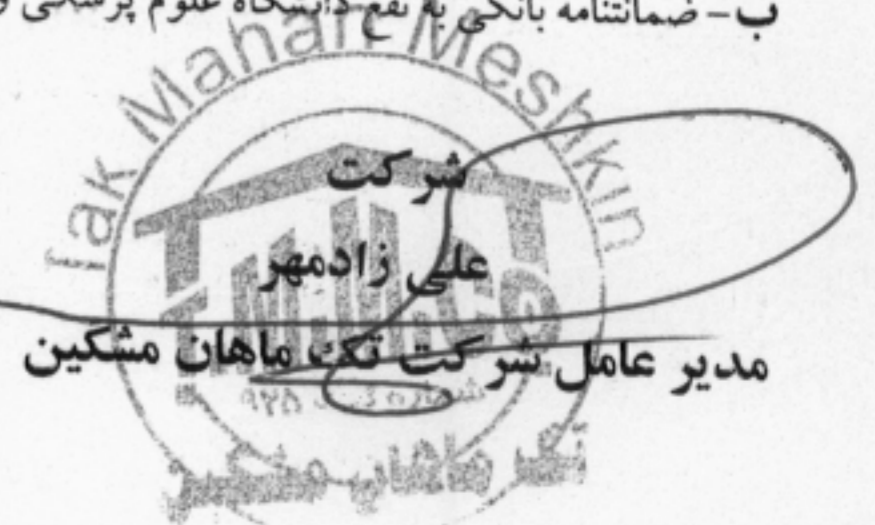 ب- ضمانتنامه بانکی به نفع دانشگاه علوم پزشکی و
Tak Mahan Meshkin
شرکت
علی زادمهر
مدیر عامل شرکت تک ماهان مشکین
شماره ثبت ۹۲۵
تک ماهان مشکین